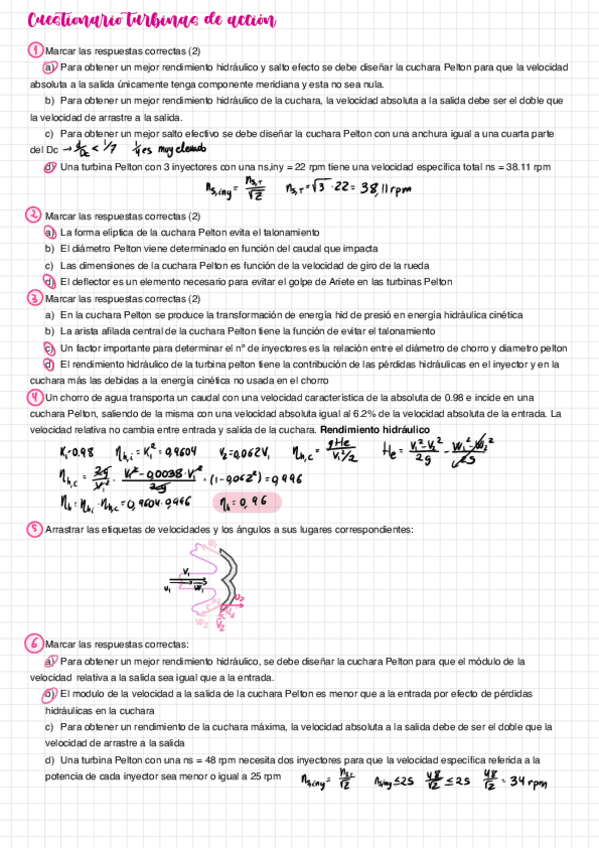 Cuestionario turbinas de acción
1 Marcar las respuestas correctas (2)
a) Para obtener un mejor rendimiento hidráulico y salto efecto se debe diseñar la cuchara Pelton para que la velocidad
absoluta a la salida únicamente tenga componente meridiana y esta no sea nula.
b) Para obtener un mejor rendimiento hidráulico de la cuchara, la velocidad absoluta a la salida debe ser el doble que
la velocidad de arrastre a la salida.
c) Para obtener un mejor salto efectivo se debe diseñar la cuchara Pelton con una anchura igual a una cuarta parte
del Dc → d/Dc < 1/7 1/4 es muy elevado
d) Una turbina Pelton con 3 inyectores con una ns,iny = 22 rpm tiene una velocidad especifica total ns = 38.11 rpm
ns,iny = ns,T/√z ns,T = √3 · 22 = 38,11 rpm
2 Marcar las respuestas correctas (2)
a) La forma elíptica de la cuchara Pelton evita el talonamiento
b) El diámetro Pelton viene determinado en función del caudal que impacta
c) Las dimensiones de la cuchara Pelton es función de la velocidad de giro de la rueda
d) El deflector es un elemento necesario para evitar el golpe de Ariete en las turbinas Pelton
3 Marcar las respuestas correctas (2)
a) En la cuchara Pelton se produce la transformación de energía hid de presió en energía hidráulica cinética
b) La arista afilada central de la cuchara Pelton tiene la función de evitar el talonamiento
c) Un factor importante para determinar el nº de inyectores es la relación entre el diámetro de chorro y diametro pelton
d) El rendimiento hidráulico de la turbina pelton tiene la contribución de las pérdidas hidráulicas en el inyector y en la
cuchara más las debidas a la energía cinética no usada en el chorro
4 Un chorro de agua transporta un caudal con una velocidad característica de la absoluta de 0.98 e incide en una
cuchara Pelton, saliendo de la misma con una velocidad absoluta igual al 6.2% de la velocidad absoluta de la entrada. La
velocidad relativa no cambia entre entrada y salida de la cuchara. Rendimiento hidráulico
K₁=0.98 ηh,i = K₁² = 0,9604 V₂=0,062V₁ ηh,c = gHe/(V₁²/2) He = (V₁²-V₂²)/2g - (W₁²-W₂²)/2g
ηh,c = 2g/V₁² · (V₁²-0,0038·V₁²)/2g = (1-0,062²) = 0,996
ηh = ηhi · ηh,c = 0,9604·0,996 ηh = 0,96
5 Arrastrar las etiquetas de velocidades y los ángulos a sus lugares correspondientes:
V₁
U₁ W₁
U₂
W₂ V₂
6 Marcar las respuestas correctas:
a) Para obtener un mejor rendimiento hidráulico, se debe diseñar la cuchara Pelton para que el módulo de la
velocidad relativa a la salida sea igual que a la entrada.
b) El modulo de la velocidad a la salida de la cuchara Pelton es menor que a la entrada por efecto de pérdidas
hidráulicas en la cuchara
c) Para obtener un rendimiento de la cuchara máxima, la velocidad absoluta a la salida debe de ser el doble que la
velocidad de arrastre a la salida
d) Una turbina Pelton con una ns = 48 rpm necesita dos inyectores para que la velocidad específica referida a la
potencia de cada inyector sea menor o igual a 25 rpm ns,iny = ns,T/√z ns,iny ≤ 25 48/√2 ≤ 25 48/√2 = 34 rpm